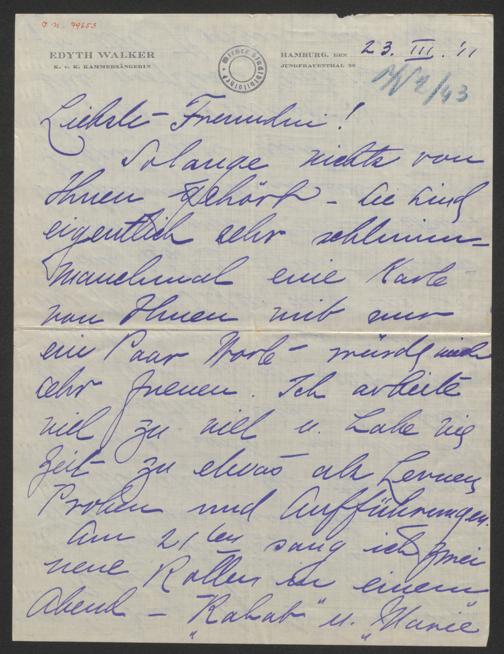 I.N. 79653
EDYTH WALKER
K. u. K. KAMMERSÄNGERIN
Wiener Stadtbibliothek
HAMBURG, DEN 23. III. '11
JUNGFRAUENTHAL
Liebste Freundin!
Solange nichts von
Ihnen gehört – Sie sind
eigentlich sehr schlimm –
Manchmal eine Karte
von Ihnen mit nur
ein Paar Worte – würde mich
sehr freuen. Ich arbeite
viel zu viel u. habe nie
Zeit zu etwas als Lernen
Proben und Aufführungen.
Am 21ten sang ich zwei
neue Rollen in einem
Abend – "Rahab" u. "Marie"